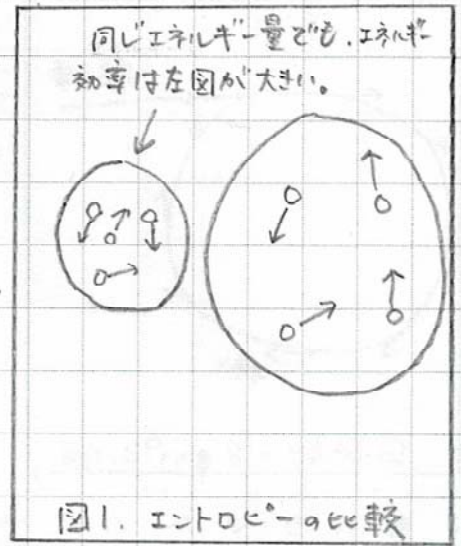 同じエネルギー量でも、エネルギー
効率は左図が大きい。
図1. エントロピーの比較